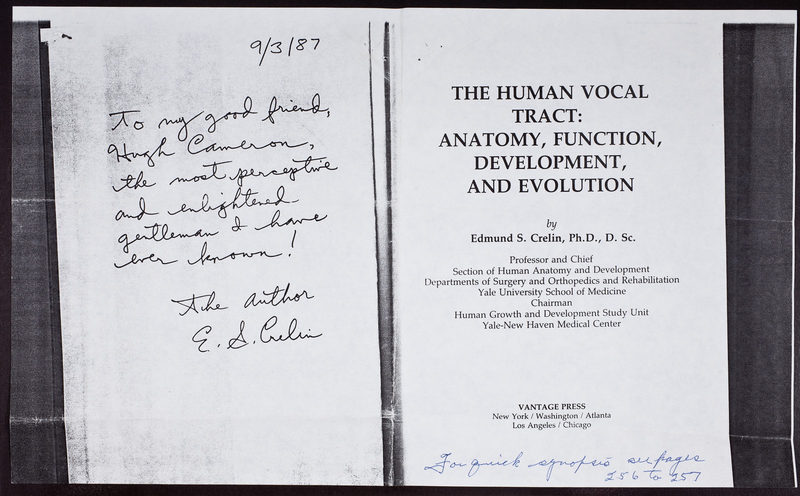 9/3/87
To my good friend,
Hugh Cameron,
the most perceptive
and enlightened
gentleman I have
ever known!
The Author
E. S. Crelin
THE HUMAN VOCAL
TRACT:
ANATOMY, FUNCTION,
DEVELOPMENT,
AND EVOLUTION
by
Edmund S. Crelin, Ph.D., D. Sc.
Professor and Chief
Section of Human Anatomy and Development
Departments of Surgery and Orthopedics and Rehabilitation
Yale University School of Medicine
Chairman
Human Growth and Development Study Unit
Yale-New Haven Medical Center
VANTAGE PRESS
New York / Washington / Atlanta
Los Angeles / Chicago
For quick synopsis see pages
256 to 257